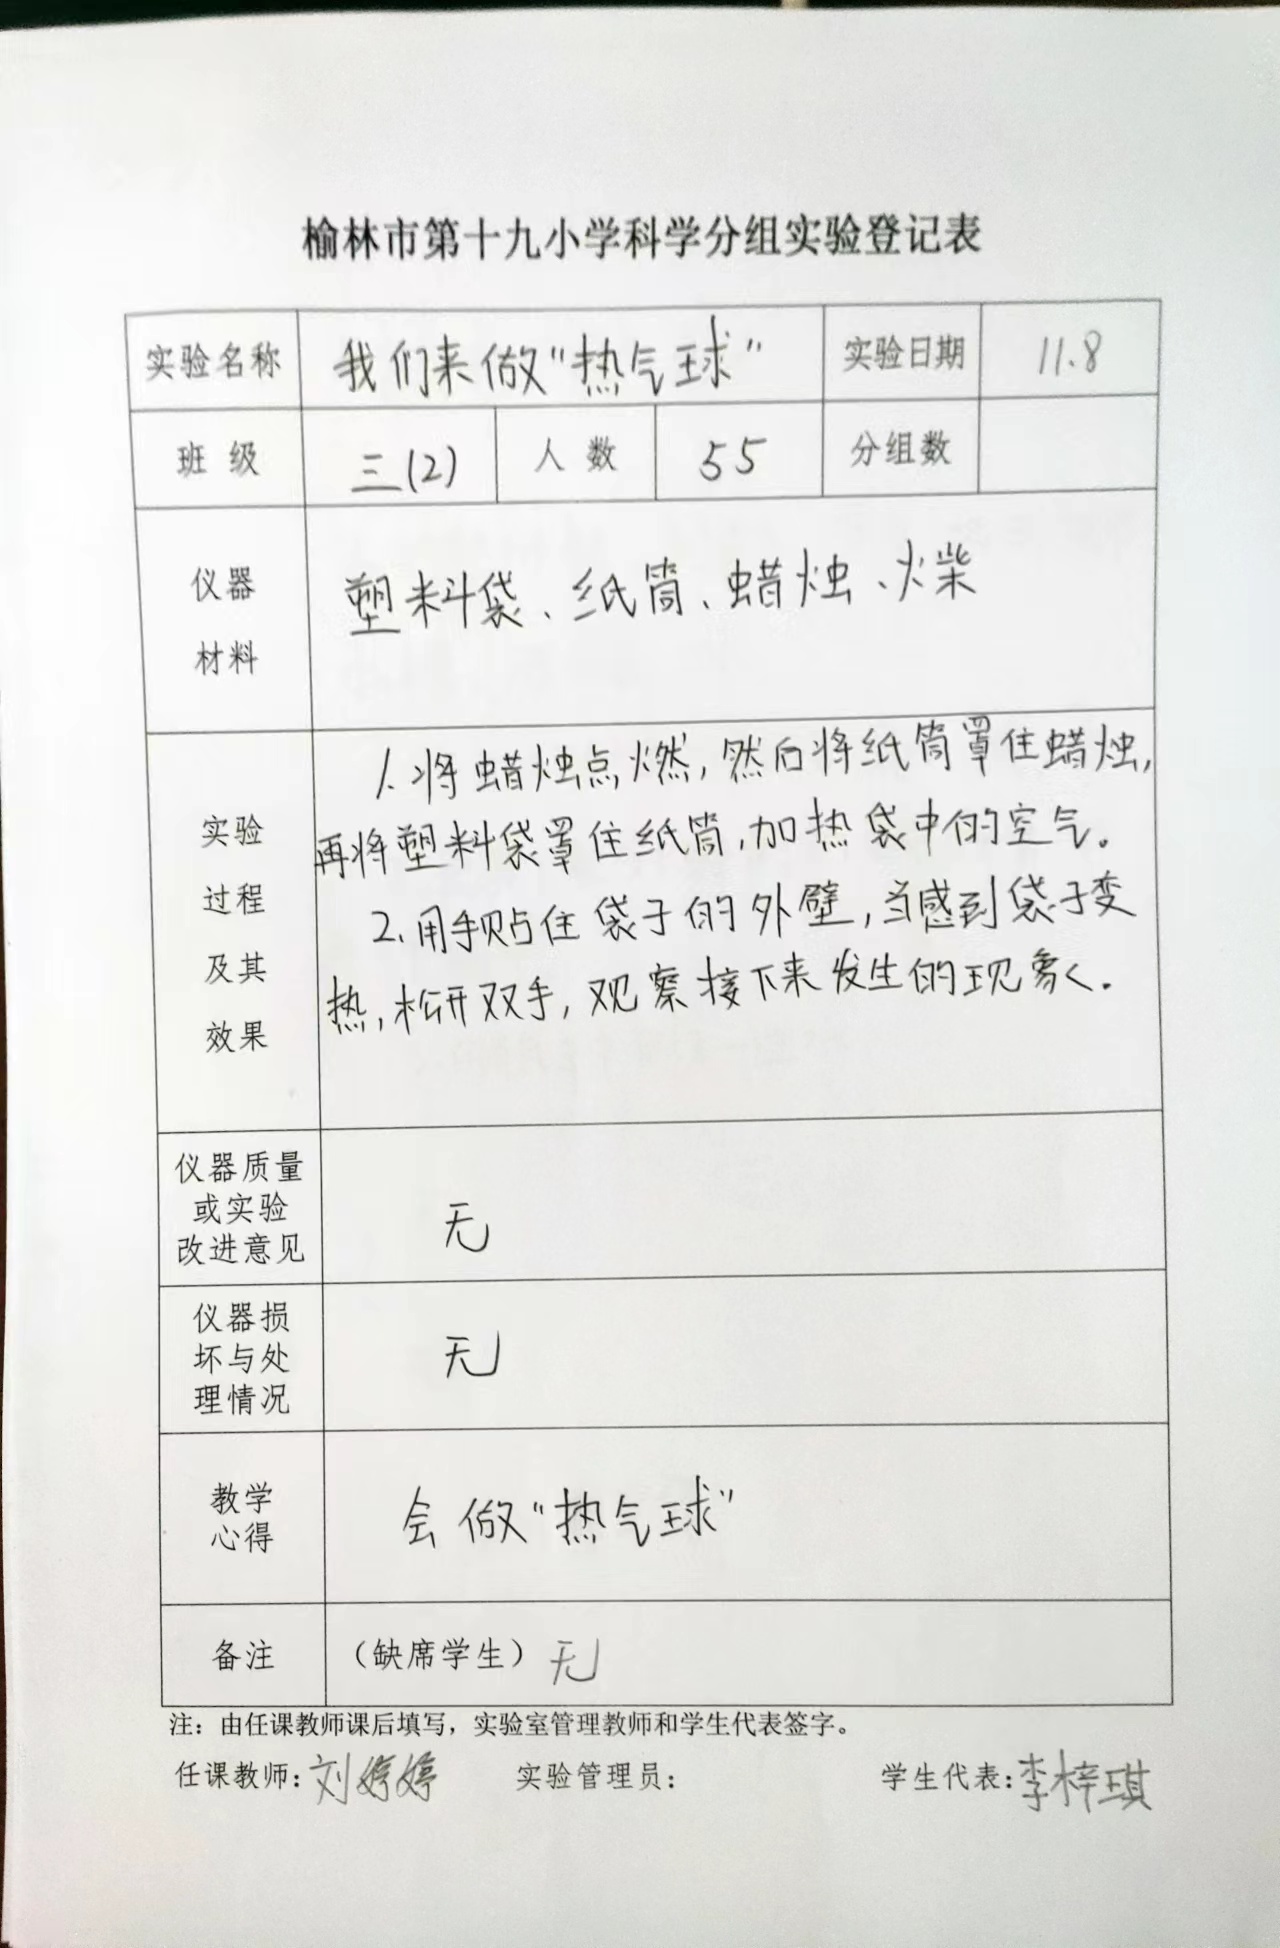 榆林市第十九小学科学分组实验登记表
实验名称 我们来做“热气球” 实验日期 11.8
班级 三(2) 人数 55 分组数
仪器
材料
塑料袋、纸筒、蜡烛、火柴
实验
过程
及其
效果
1.将蜡烛点燃,然后将纸筒罩住蜡烛,
再将塑料袋罩住纸筒,加热袋中的空气。
2.用手贴住袋子的外壁,当感到袋子变
热,松开双手,观察接下来发生的现象。
仪器质量
或实验
改进意见
无
仪器损
坏与处
理情况
无
教学
心得
会做“热气球”
备注 (缺席学生) 无
注：由任课教师课后填写，实验室管理教师和学生代表签字。
任课教师：刘婷婷 实验管理员： 学生代表：李梓琪